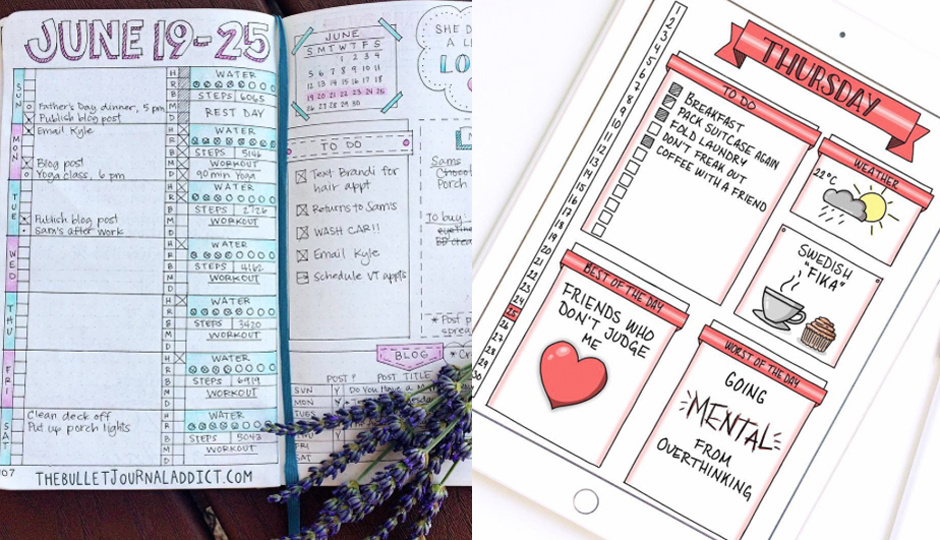 JUNE 19-25
S U N
H
WATER
R
B
STEPS 6065
Father's Day dinner, 5 pm
M
REST DAY
Publish blog post
D
M O N
Email Kyle
H
WATER
R
B
STEPS 5146
Blog post
M
WORKOUT
Yoga class, 6 pm
D
90 min Yoga
T U E
H
WATER
R
B
STEPS 2726
Publish blog post
M
WORKOUT
Sam's after work
D
W E D
H
WATER
R
B
STEPS 4162
M
WORKOUT
D
T H U
H
WATER
R
B
STEPS 3420
M
WORKOUT
D
F R I
H
WATER
R
B
STEPS 6919
M
WORKOUT
D
S A T
Clean deck off
H
WATER
Put up porch lights
R
B
STEPS 5043
M
WORKOUT
D
07
THEBULLETJOURNALADDICT.COM
JUNE
S M T W T F S
1 2 3
4 5 6 7 8 9 10
12 13 14 15 16 17
19 20 21 22 23 24 25
26 27 28 29 30
TO DO
Text Brandi for
hair appt
Returns to Sam's
WASH CAR!!
Email Kyle
Schedule VT appts
SHE D
A L
LO
Sams
Porch
To buy
* Post p
sprea
BLOG
* Cr
POST? POST TITLE
SUN Y Do You Have a M
MON
TUES
FRI
SAT
1
2
3
4
5
6
7
8
9
10
11
12
13
14
15
16
17
18
19
20
21
22
23
24
25
26
27
28
29
30
THURSDAY
TO DO
BREAKFAST
PACK SUITCASE AGAIN
FOLD LAUNDRY
DON'T FREAK OUT
COFFEE WITH A FRIEND
WEATHER
22°C
SWEDISH
"FIKA"
BEST OF THE DAY
FRIENDS WHO
DON'T JUDGE
ME
WORST OF THE DAY
GOING
MENTAL
FROM
OVERTHINKING